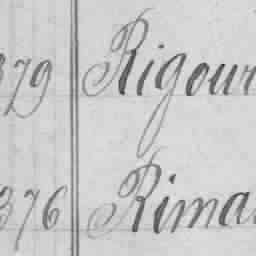 379 Rigour
376 Rima